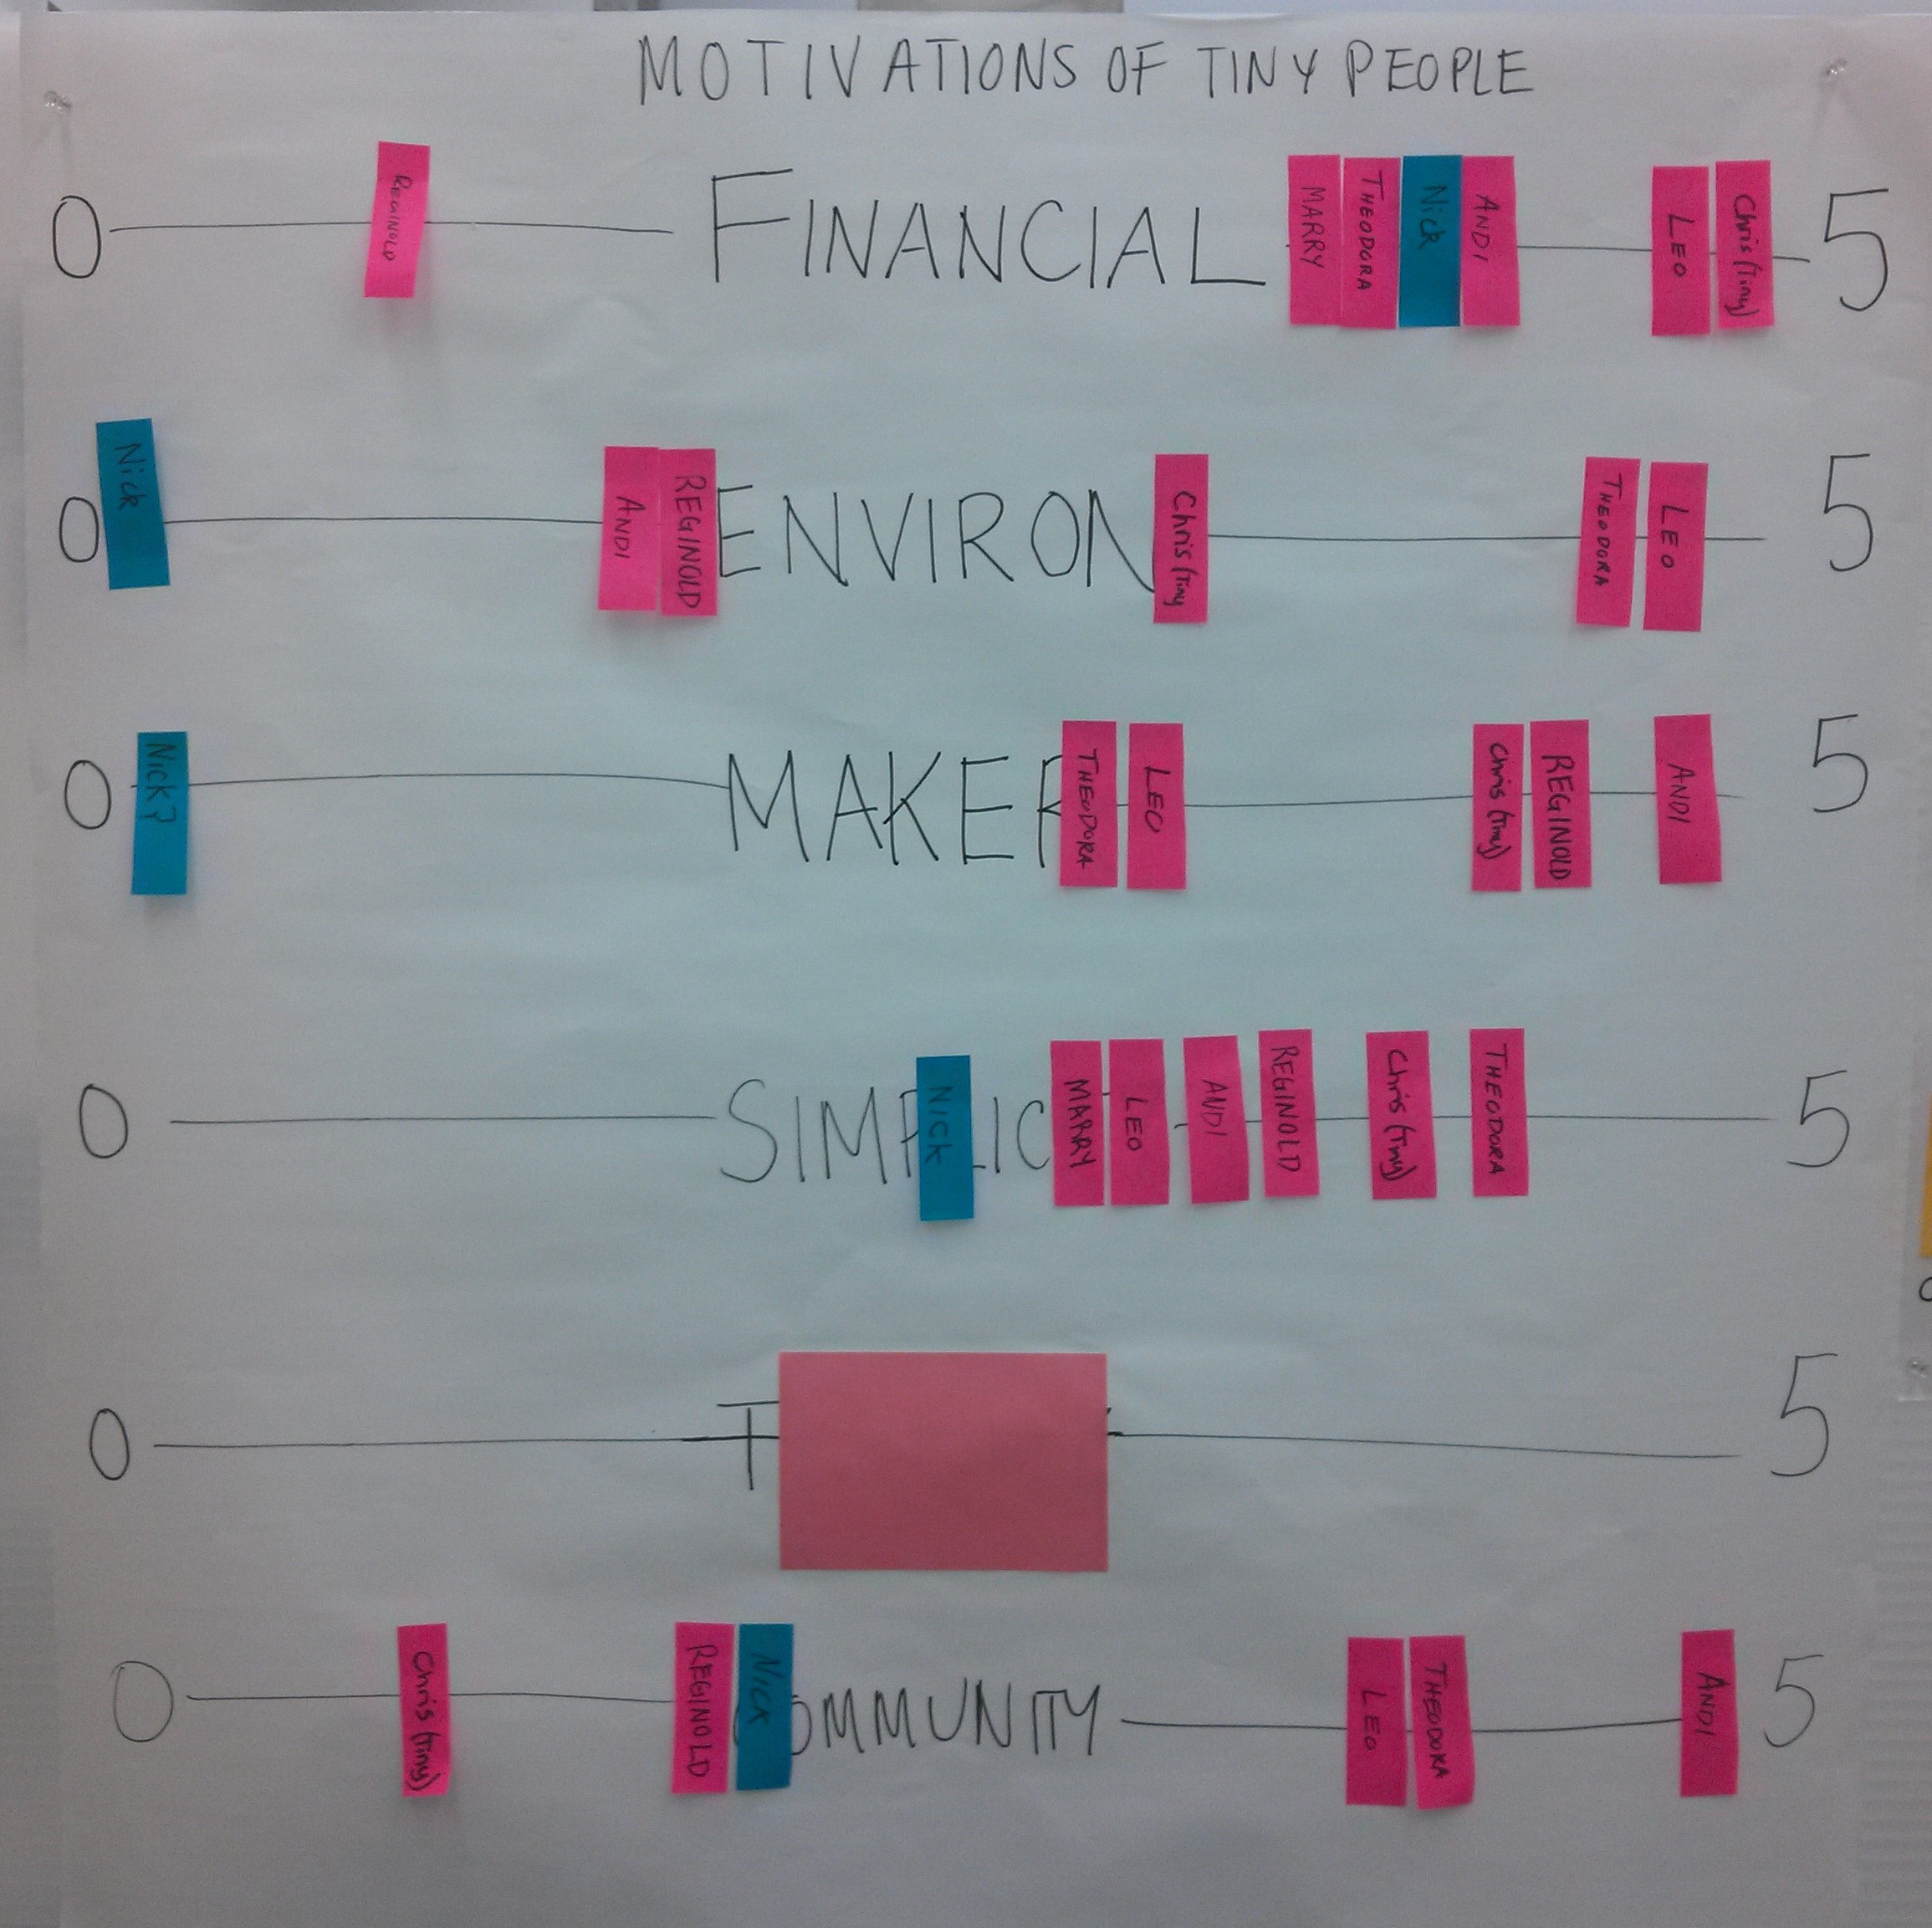 MOTIVATIONS OF TINY PEOPLE
0 REGINOLD FINANCIAL MARRY THEODORA Nick ANDI LEO Chris (Tiny) 5
0 Nick ANDI REGINOLD ENVIRON Chris (Tiny THEODORA LEO 5
0 Nick? MAKER THEODORA LEO Chris (Tiny) REGINOLD ANDI 5
0 SIMPLIC NICK MARRY LEO ANDI REGINOLD Chris (Tiny) THEODORA 5
0 T 5
0 Chris (Tiny) REGINOLD NICK COMMUNITY LEO THEODORA ANDI 5